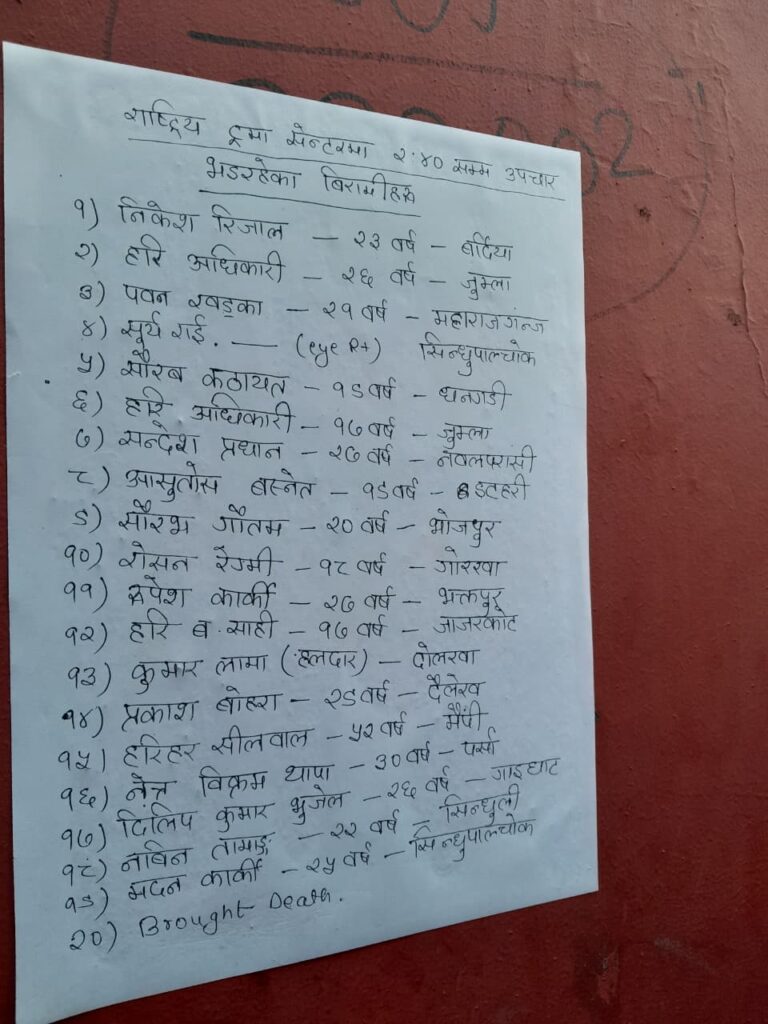 राष्ट्रिय ट्रमा सेन्टरमा २:४० सम्म उपचार
भइरहेका बिरामीहरु
१) निकेश रिजाल – २३ वर्ष – बर्दिया
२) हरि अधिकारी – २६ वर्ष – जुम्ला
३) पवन खड्का – २१ वर्ष – महाराजगन्ज
४) सूर्य राई. — (eye Rt) सिन्धुपाल्चोक
५) सौरब कठायत – १९ वर्ष – धनगढी
६) हरि अधिकारी – १७ वर्ष – जुम्ला
७) सन्देश प्रधान – २७ वर्ष – नवलपरासी
८) आसुतोस बस्नेत – १९ वर्ष – इटहरी
९) सौरभ गौतम – २० वर्ष – भोजपुर
१०) रोसन रेग्मी – १८ वर्ष – गोरखा
११) रुपेश कार्की – २७ वर्ष – भक्तपुर
१२) हरि ब. साही – १७ वर्ष – जाजरकोट
१३) कुमार लामा (हलदार) – दोलखा
१४) प्रकाश बोहरा – २९ वर्ष – दैलेख
१५) हरिहर सीलवाल – ५२ वर्ष –
१६) नेत्र विक्रम थापा – ३० वर्ष – पर्सा
१७) दिलिप कुमार भुजेल – २६ वर्ष – गाइघाट
१८) नविन तामाङ – २२ वर्ष – सिन्धुली
१९) मदन कार्की – २५ वर्ष – सिन्धुपाल्चोक
२०) Brought Death.